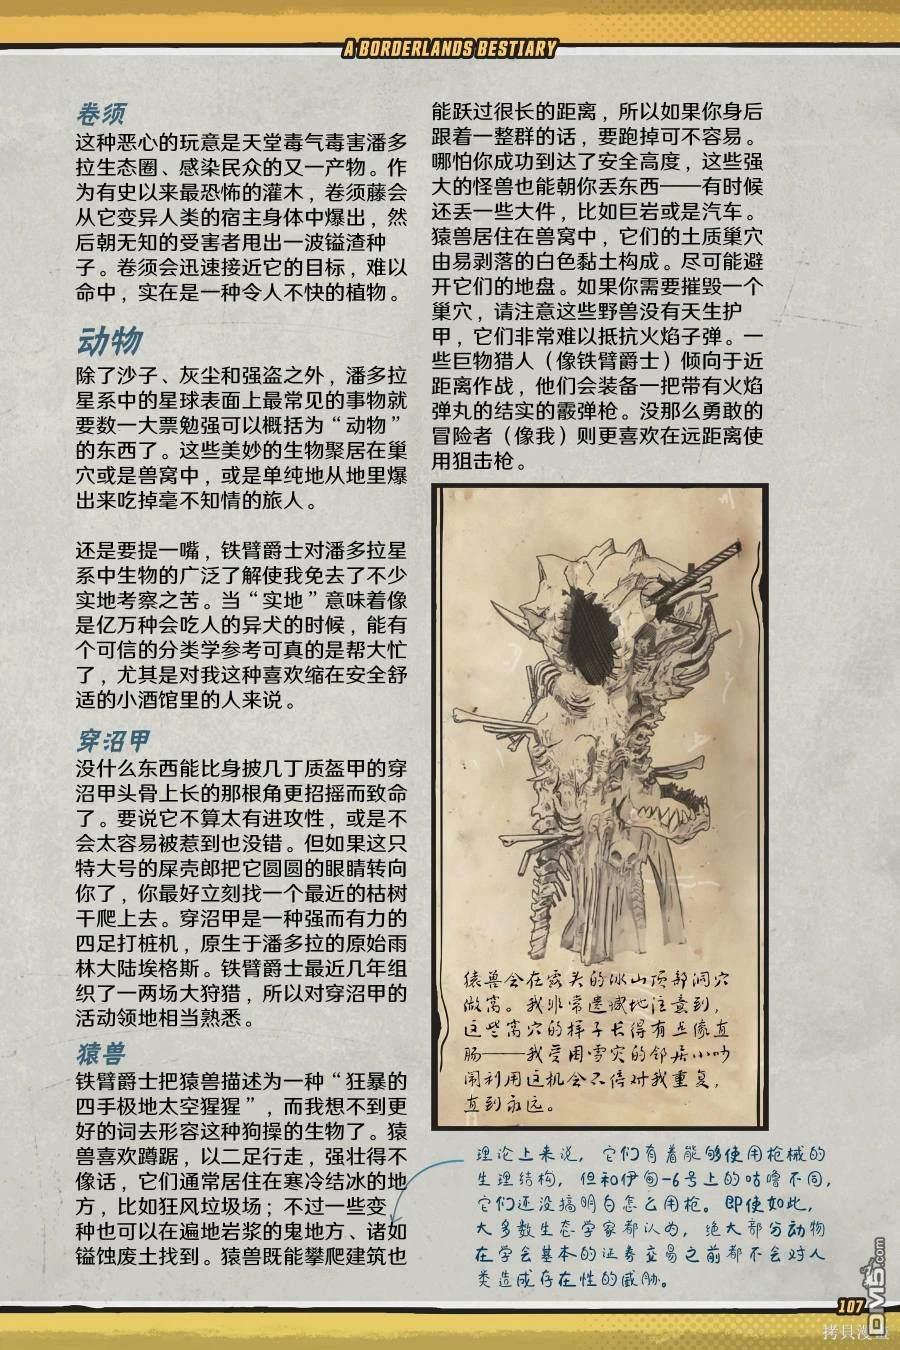 A BORDERLANDS BESTIARY
卷须
这种恶心的玩意是天堂毒气毒害潘多
拉生态圈、感染民众的又一产物。作
为有史以来最恐怖的灌木，卷须藤会
从它变异人类的宿主身体中爆出，然
后朝无知的受害者甩出一波镒渣种
子。卷须会迅速接近它的目标，难以
命中，实在是一种令人不快的植物。
动物
除了沙子、灰尘和强盗之外，潘多拉
星系中的星球表面上最常见的事物就
要数一大票勉强可以概括为“动物”
的东西了。这些美妙的生物聚居在巢
穴或是兽窝中，或是单纯地从地里爆
出来吃掉毫不知情的旅人。
还是要提一嘴，铁臂爵士对潘多拉星
系中生物的广泛了解使我免去了不少
实地考察之苦。当“实地”意味着像
是亿万种会吃人的异犬的时候，能有
个可信的分类学参考可真的是帮大忙
了，尤其是对我这种喜欢缩在安全舒
适的小酒馆里的人来说。
穿沼甲
没什么东西能比身披几丁质盔甲的穿
沼甲头骨上长的那根角更招摇而致命
了。要说它不算太有进攻性，或是不
会太容易被惹到也没错。但如果这只
特大号的屎壳郎把它圆圆的眼睛转向
你了，你最好立刻找一个最近的枯树
干爬上去。穿沼甲是一种强而有力的
四足打桩机，原生于潘多拉的原始雨
林大陆埃格斯。铁臂爵士最近几年组
织了一两场大狩猎，所以对穿沼甲的
活动领地相当熟悉。
猿兽
铁臂爵士把猿兽描述为一种“狂暴的
四手极地太空猩猩”，而我想不到更
好的词去形容这种狗操的生物了。猿
兽喜欢蹲踞，以二足行走，强壮得不
像话，它们通常居住在寒冷结冰的地
方，比如狂风垃圾场；不过一些变
种也可以在遍地岩浆的鬼地方、诸如
镒蚀废土找到。猿兽既能攀爬建筑也
能跃过很长的距离，所以如果你身后
跟着一整群的话，要跑掉可不容易。
哪怕你成功到达了安全高度，这些强
大的怪兽也能朝你丢东西——有时候
还丢一些大件，比如巨岩或是汽车。
猿兽居住在兽窝中，它们的土质巢穴
由易剥落的白色黏土构成。尽可能避
开它们的地盘。如果你需要摧毁一个
巢穴，请注意这些野兽没有天生护
甲，它们非常难以抵抗火焰子弹。一
些巨物猎人（像铁臂爵士）倾向于近
距离作战，他们会装备一把带有火焰
弹丸的结实的霰弹枪。没那么勇敢的
冒险者（像我）则更喜欢在远距离使
用狙击枪。
猿兽会在露头的冰山顶部洞穴
做窝。我非常遗憾地注意到，
这些窝穴的样子长得有点像直
肠——我爱用雪灾的邻居小吵
闹利用这机会不停对我重复，
直到永远。
理论上来说，它们有着能够使用枪械的
生理结构，但和伊甸-6号上的咕噜不同，
它们还没搞明白怎么用枪。即使如此，
大多数生态学家都认为，绝大部分动物
在学会基本的证券交易之前都不会对人
类造成存在性的威胁。
107
DM5.com
拷貝漫畫